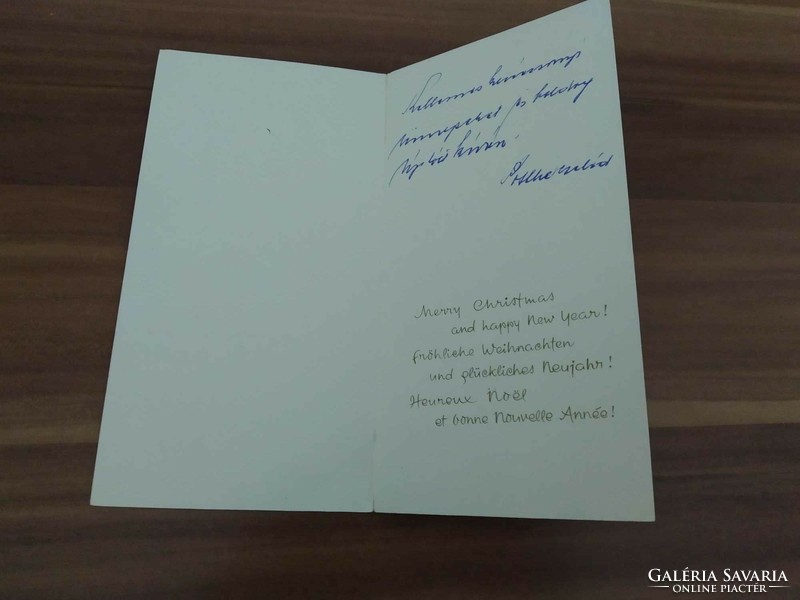 Kellemes karácsonyi
ünnepeket és boldog
Újévet kíván
család
Merry Christmas
and happy New Year!
Fröhliche Weihnachten
und glückliches Neujahr!
Heureux Noël
et bonne Nouvelle Année!
GALÉRIA SAVARIA
ONLINE PIACTÉR